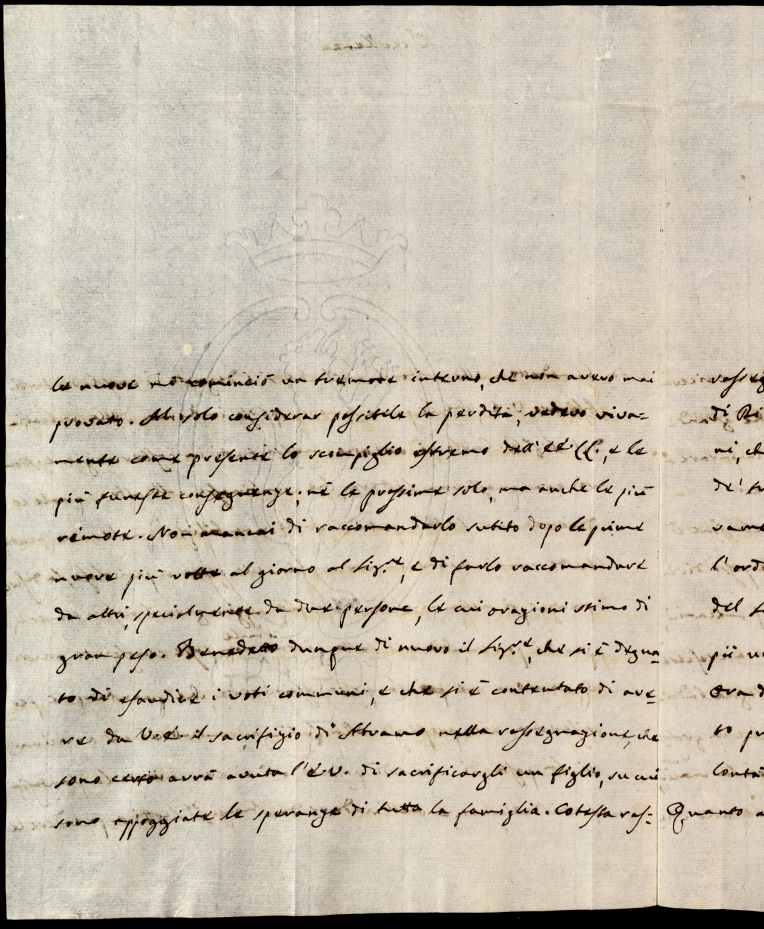 le nuove mi cominciò un tremore interno, che non avevo mai
provato. Al solo considerar possibile la perdita, vedevo viva-
mente come presente lo scompiglio estremo dell' EE. LL., e le
più funeste conseguenze; nè le prossime solo, ma anche le più
remote. Non mancai di raccomandarlo subito dopo le prime
nuove più volte al giorno al Sig.re, e di farlo raccomandare
da altri, specialmente da due persone, le cui orazioni stimo di
gran peso. Benedetto dunque di nuovo il Sig.re, che si è degna-
to di esaudire i voti communi, e che si è contentato di ave-
re da V.E. il sacrifizio di Abramo nella rassegnazione, che
sono certo avrà avuta l'E.V. di sacrificargli un figlio, su cui
sono appoggiate le speranze di tutta la famiglia. Cotesta ras-
rasseg
di Ri
ni, ch
de' fr
vame
l'ord
del S
più u
Ora d
to pr
lonta
Quanto a